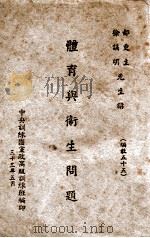 (編教五十六)
郝更生
徐鎮明 先生編
體育與衛生問題
中央訓練團黨政高級訓練班編印
三十三年五月